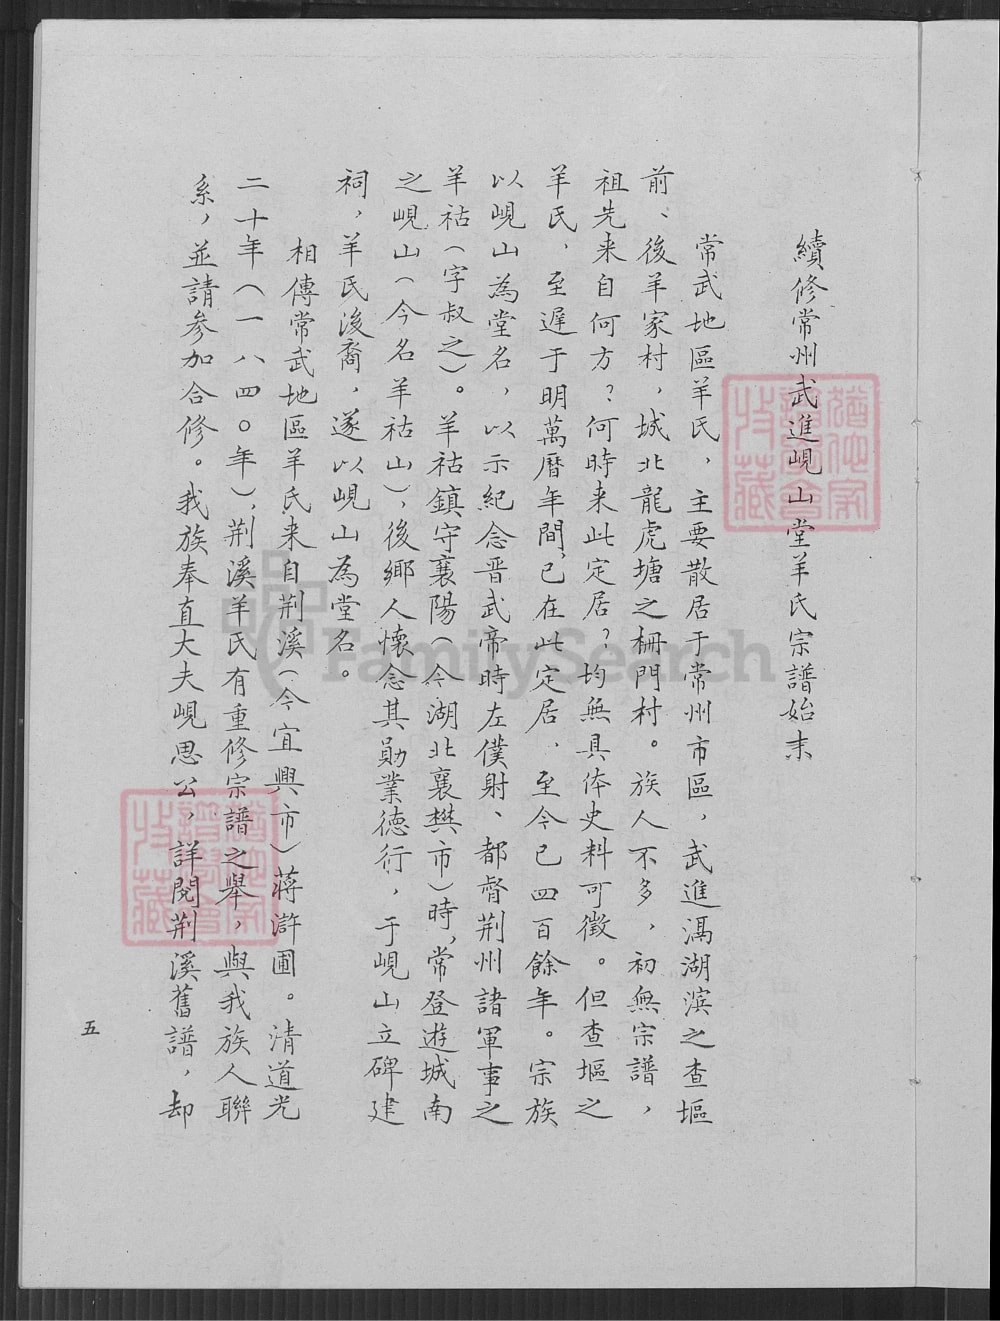 續修常州武進峴山堂羊氏宗譜始末
常武地區羊氏，主要散居于常州市區，武進滆湖滨之查堰
前、後羊家村，城北龍虎塘之柵門村。族人不多，初無宗譜，
祖先来自何方？何時来此定居？均無具体史料可徵。但查堰之
羊氏，至遲于明萬曆年間，已在此定居，至今已四百餘年。宗族
以峴山為堂名，以示紀念晋武帝時左僕射、都督荆州諸軍事之
羊祜（字叔之）。羊祜鎮守襄陽（今湖北襄樊市）時，常登遊城南
之峴山（今名羊祜山），後鄉人懷念其勛業德行，于峴山立碑建
祠，羊氏後裔，遂以峴山為堂名。
相傳常武地區羊氏来自荆溪（今宜興市）蔣滸圃。清道光
二十年（一八四〇年），荆溪羊氏有重修宗譜之舉，與我族人聯
系，並請参加合修。我族奉直大夫峴思公，詳閱荆溪舊譜，却
五
FamilySearch